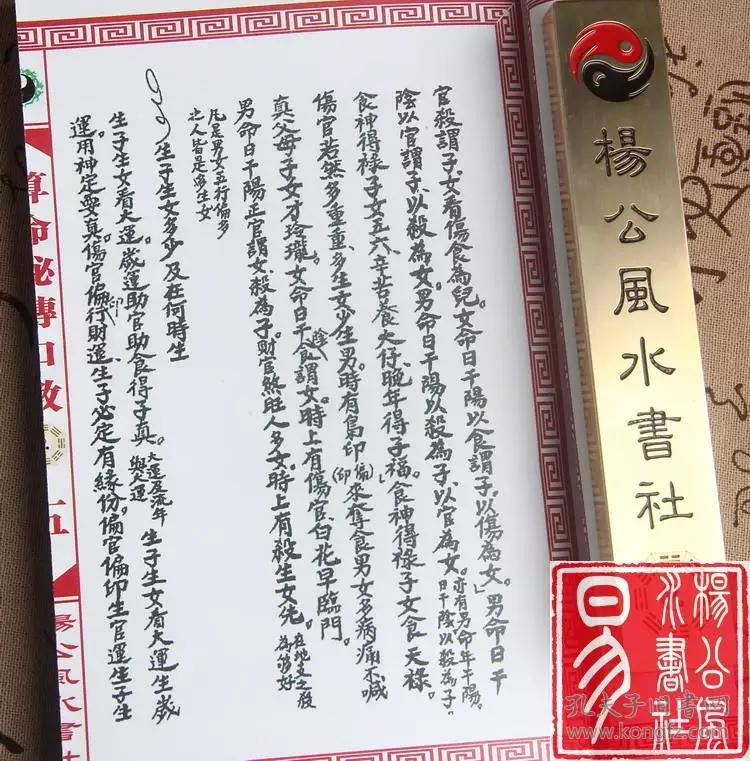 官殺謂子女看傷食為兒。女命日干陽以食謂子、以傷為女。男命日干
陰以官謂子、以殺為女。男命日干陽以殺為子、以官為女。亦有男命年干陽。日干陰以殺為子。
食神得祿子女五六、辛苦養大仔、晚年得子福。食神得祿子女食天祿。
傷官若然多重重、多生女少生男。時有梟印(偏印)來奪食男女多病痛不喊
真父母子女才玲瓏。女命日干陰食謂女。時上有傷官、白花早臨門。
男命日干陽正官謂女、殺為子、財官煞旺人多女。時上有殺生女先。在地支之殺為够好
凡是男女五行偏多
之人皆是多生女
生子生女多少及在何時生
生子生女看大運。歲運助官助食得子真。大運及流年與大運生子生女看大運生歲
運用神定娶真。傷官偏印行財運、生子必定有緣份。偏官偏印生官運生子生
算命秘傳口教
五
楊公風水書社
楊公風水書社
楊公風
水書社
易
孔夫子旧书网
www.kongfz.com